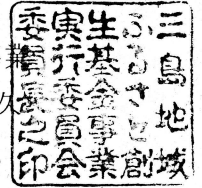 三島地域
ふるさと創
生基金事業
実行委員会
委員長之印